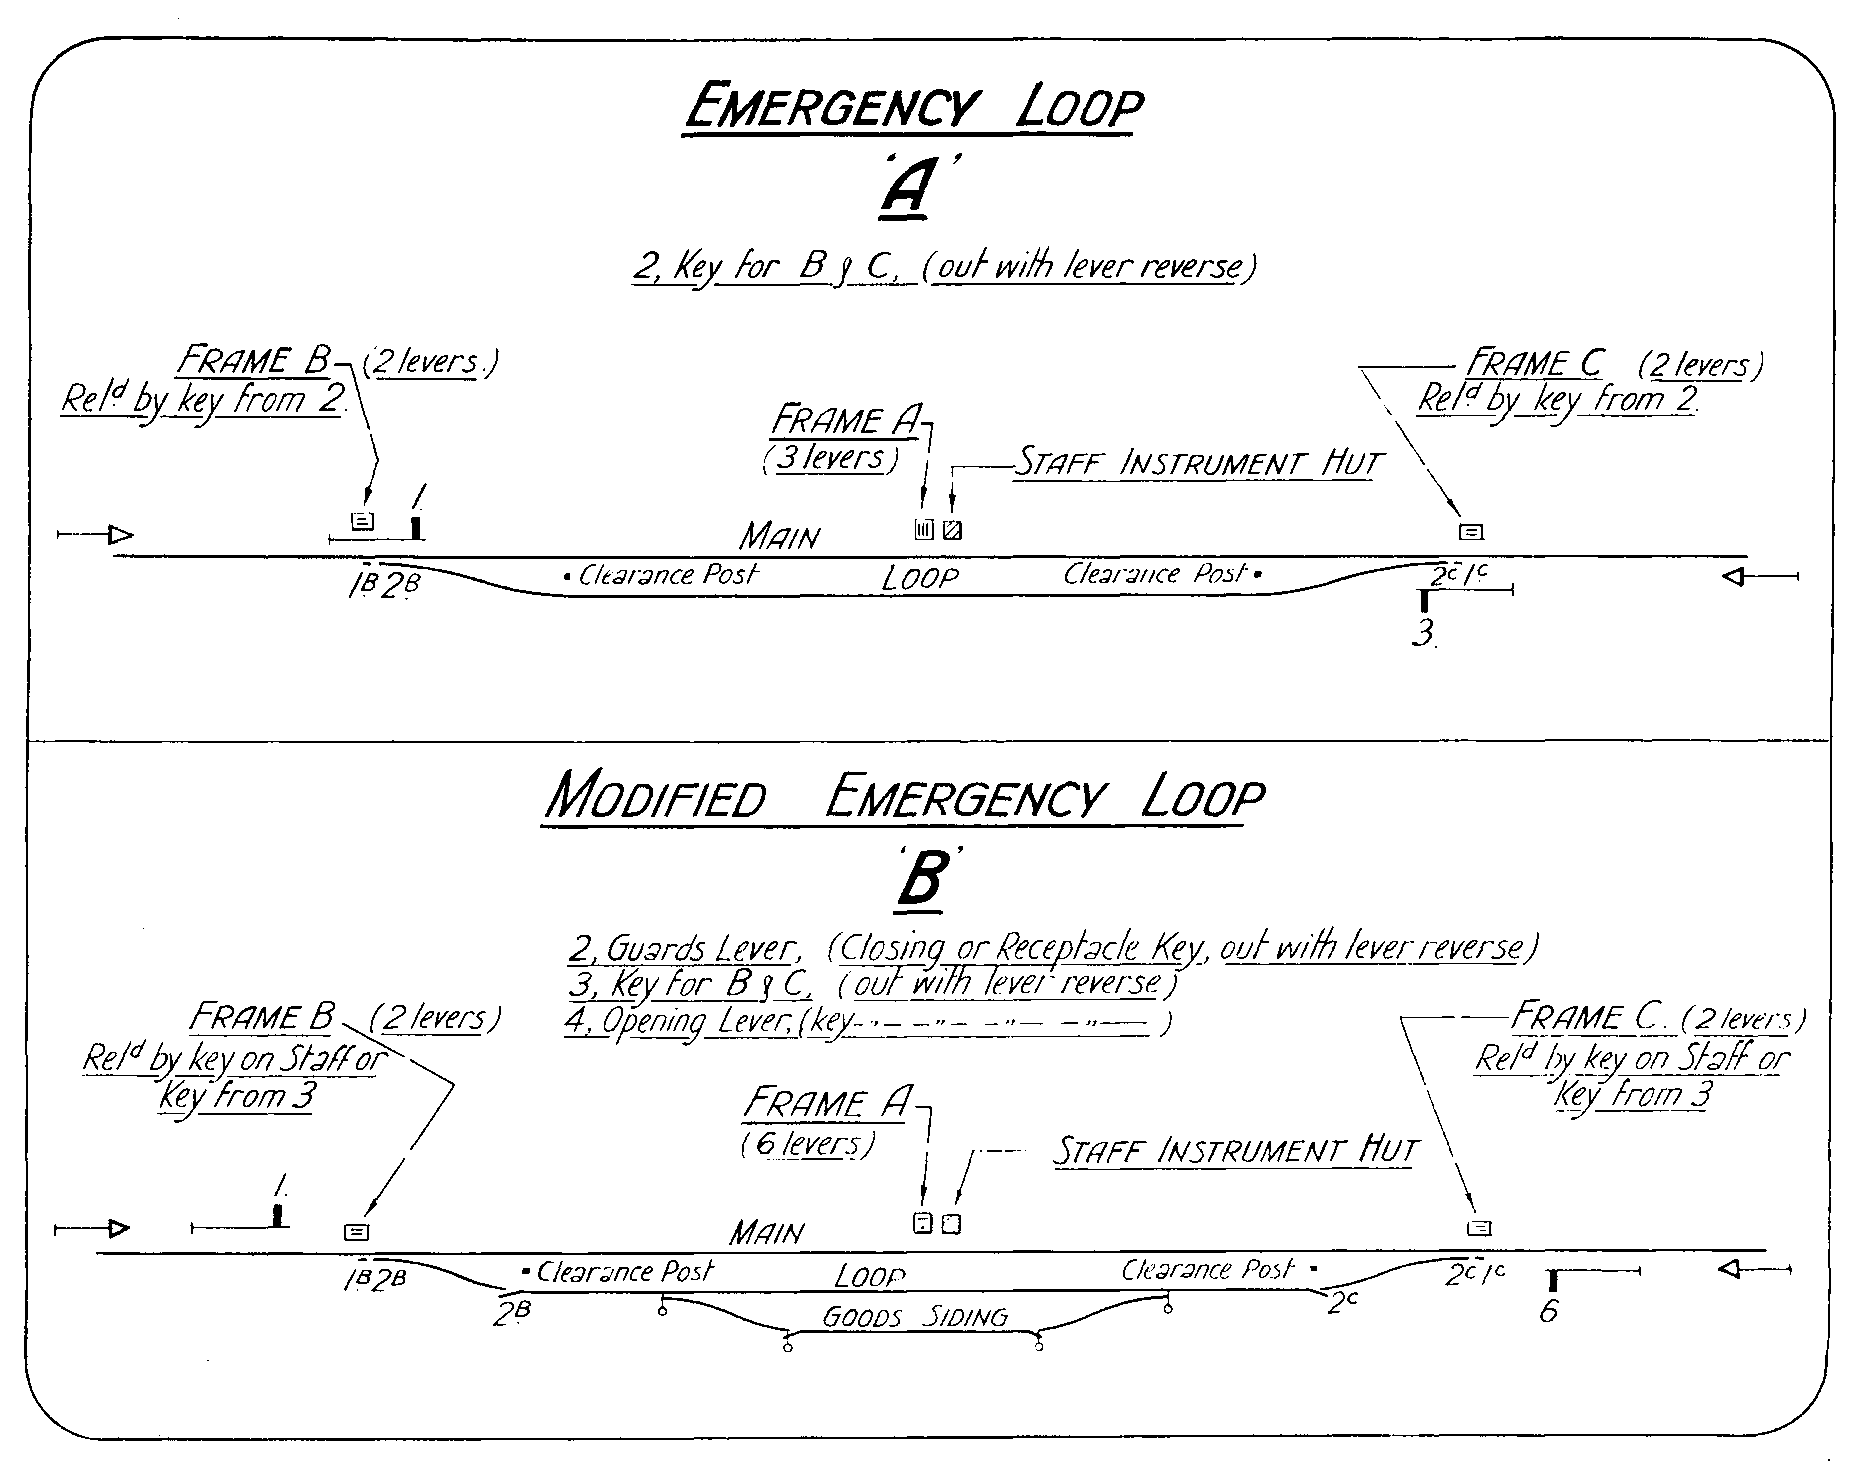 EMERGENCY LOOP
'A'
2, Key for B & C, (out with lever reverse)
FRAME B (2 levers.)
Rel.d by key from 2.
FRAME C (2 levers)
Rel.d by key from 2.
FRAME A
(3 levers)
STAFF INSTRUMENT HUT
1.
MAIN
1B 2B
Clearance Post
LOOP
Clearance Post
2C 1C
3.
MODIFIED EMERGENCY LOOP
'B'
2, Guards Lever, (Closing or Receptacle Key, out with lever reverse)
3, Key for B & C, (out with lever reverse)
4, Opening Lever, (key -"- -"- -"- -"- )
FRAME B (2 levers)
Rel.d by key on Staff or
Key from 3
FRAME C. (2 levers)
Rel.d by key on Staff or
Key from 3
FRAME A
(6 levers)
STAFF INSTRUMENT HUT
1.
MAIN
1B 2B
Clearance Post
LOOP
Clearance Post
2C 1C
2B
GOODS SIDING
2C
6